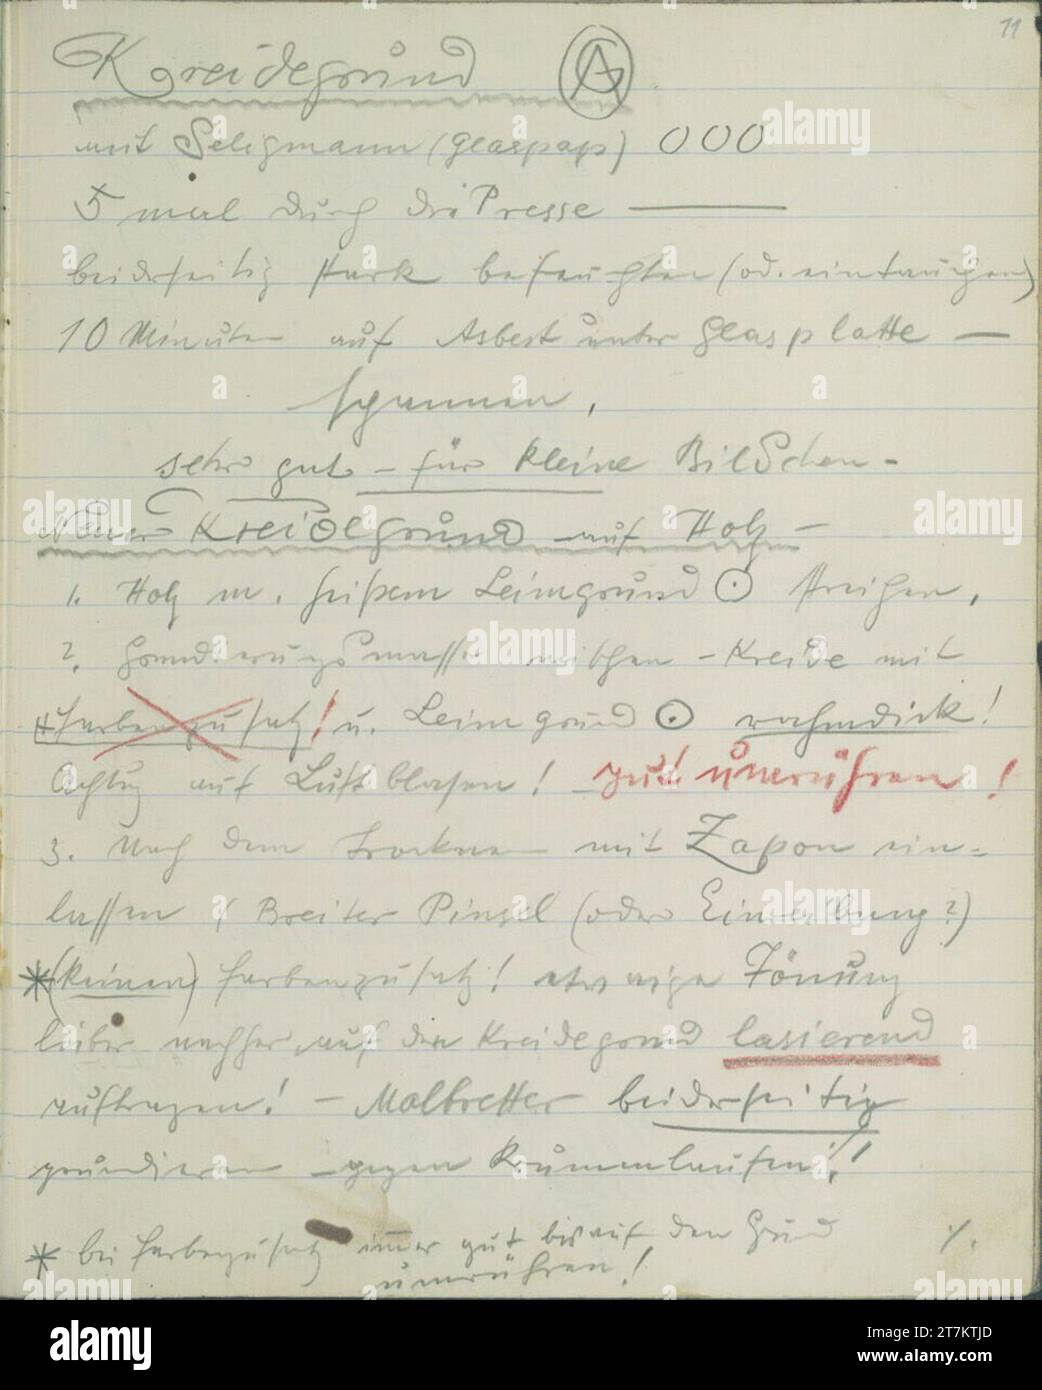 11
Kreidegrund AG
mit Seligmann (Glaspap) 000
5 mal durch die Presse —
beiderseitig stark befeuchten (od. eintauchen)
10 Minuten auf Asbest unter Glasplatte —
spannen,
sehr gut – für kleine Bildchen –
Neuer Kreidegrund auf Holz –
1. Holz m. heißem Leimgrund ⊙ streichen,
2. Grundierungsmasse mischen – Kreide mit
+ Farbenzusatz! u. Leimgrund ⊙ rahmdick!
Achtung auf Luftblasen! gut umrühren!
3. Nach dem Trocknen mit Zapon ein-
lassen / Breiter Pinsel (oder ?)
* (keinen) Farbenzusatz! etwaige Tönung
lieber nachher auf den Kreidegrund lasierend
auftragen! – Malbretter beiderseitig
grundieren – gegen Krummlaufen!!
* bei Farbenzusatz immer gut bis auf den Grund ./.
umrühren!
alamy
Image ID: 2T7KTJD
www.alamy.com